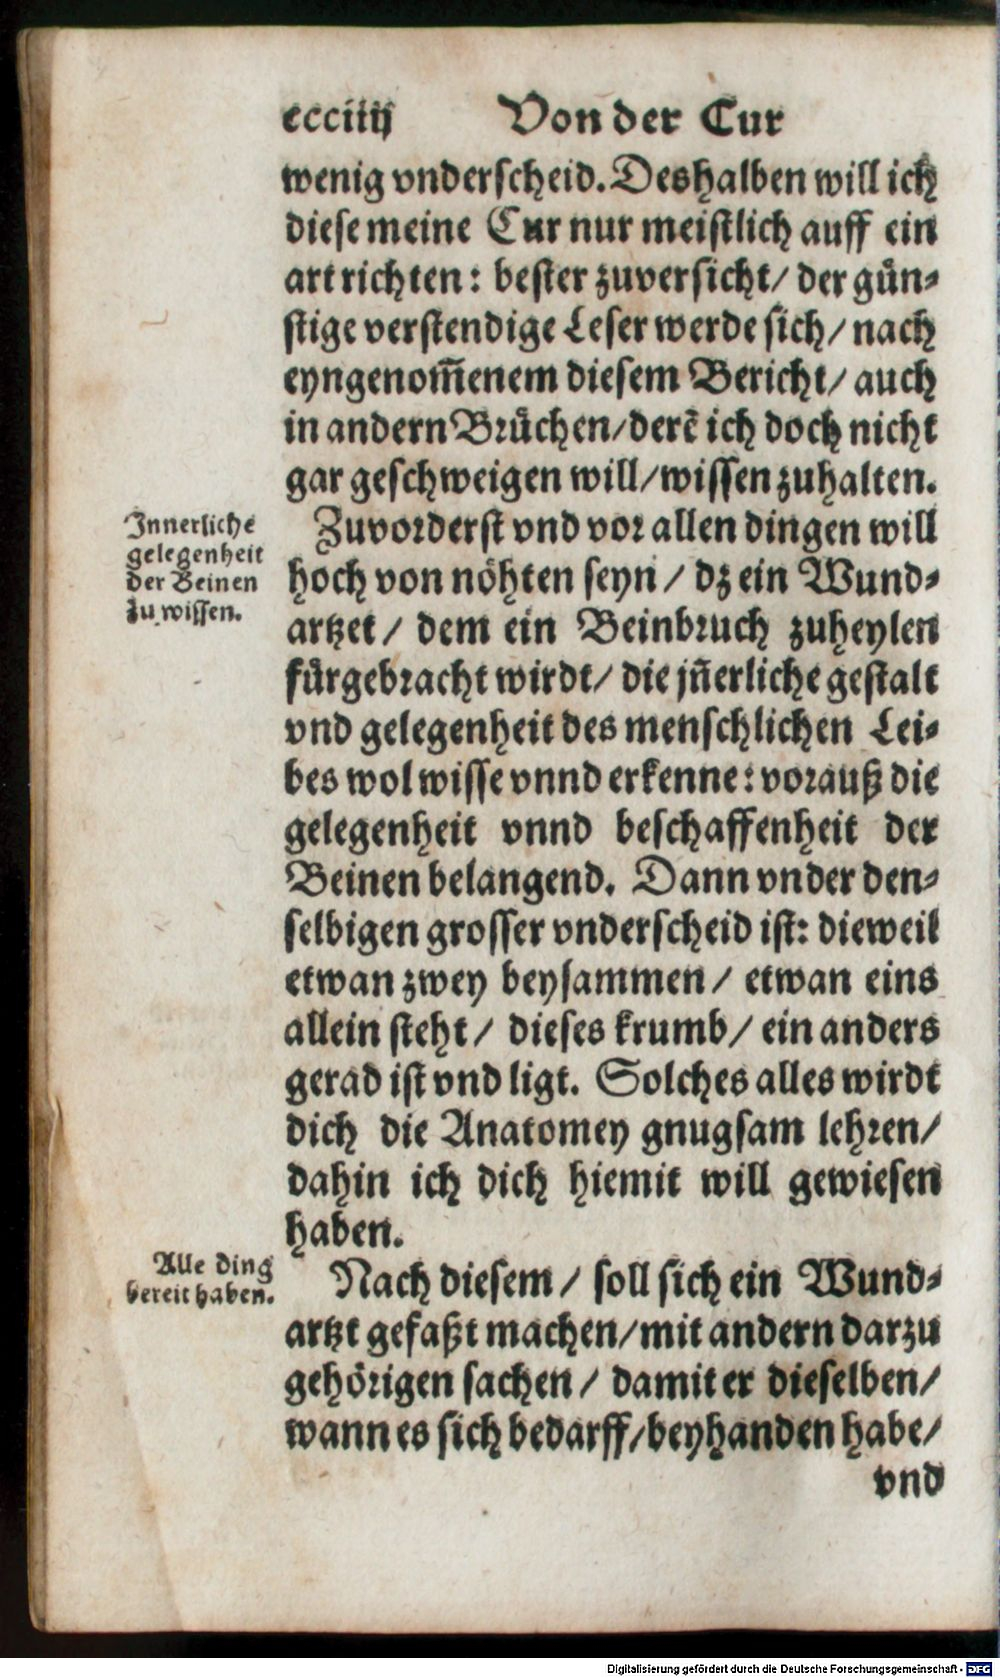 ccciiij Von der Cur
wenig vnderscheid. Deshalben will ich
diese meine Cur nur meistlich auff ein
art richten: bester zuversicht/ der gün-
stige verstendige Leser werde sich/ nach
eyngenom̃enem diesem Bericht/ auch
in andern Brüchen/ derẽ ich doch nicht
gar geschweigen will/ wissen zuhalten.
Innerliche
gelegenheit
der Beinen
zu wissen.
Zuvorderst vnd vor allen dingen will
hoch von nöhten seyn/ dz ein Wund-
artzet/ dem ein Beinbruch zuheylen
fürgebracht wirdt/ die jñerliche gestalt
vnd gelegenheit des menschlichen Lei-
bes wol wisse vnnd erkenne: vorauß die
gelegenheit vnnd beschaffenheit der
Beinen belangend. Dann vnder den-
selbigen grosser vnderscheid ist: dieweil
etwan zwey beysammen/ etwan eins
allein steht/ dieses krumb/ ein anders
gerad ist vnd ligt. Solches alles wirdt
dich die Anatomey gnugsam lehren/
dahin ich dich hiemit will gewiesen
haben.
Alle ding
bereit haben.
Nach diesem/ soll sich ein Wund-
artzt gefaßt machen/ mit andern darzu
gehörigen sachen/ damit er dieselben/
wann es sich bedarff/ beyhanden habe/
vnd
Digitalisierung gefördert durch die Deutsche Forschungsgemeinschaft - DFG